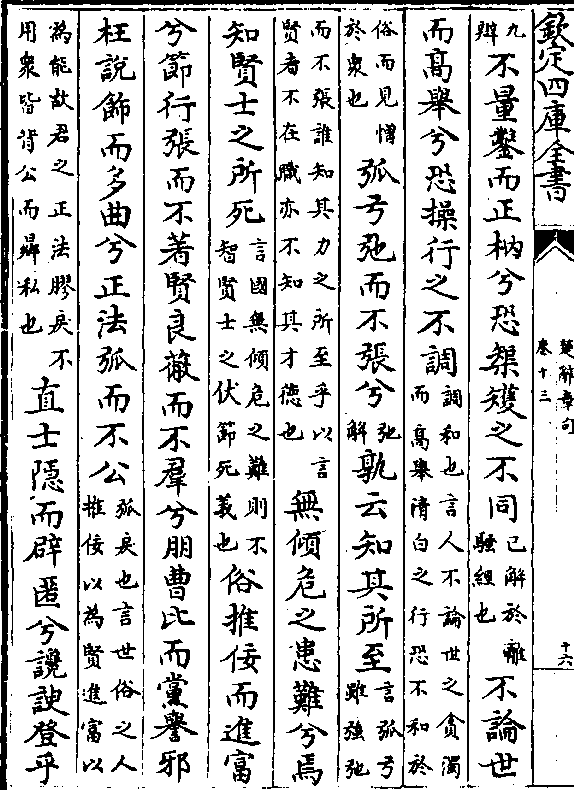 欽定四庫全書
楚辭章句
卷十三
十六
九辨不量鑿而正枘兮恐榘矱之不同已解於離騷經也不論世
而高舉兮恐操行之不調調和也言人不論世之貪濁而高舉清白之行恐不和於
俗而見憎於衆也弧弓弛而不張兮弛解孰云知其所至言弧弓雖強弛
而不張誰知其力之所至乎以言賢者不在職亦不知其才德也無傾危之患難兮焉
知賢士之所死言國無傾危之難則不智賢士之伏節死義也俗推佞而進富
兮節行張而不著賢良蔽而不羣兮朋曹比而黨譽邪
枉說飾而多曲兮正法弧而不公弧戾也言世俗之人推佞以為賢進富以
為能故君之正法膠戾不用衆皆背公而鄉私也直士隱而辟匿兮讒諛登乎